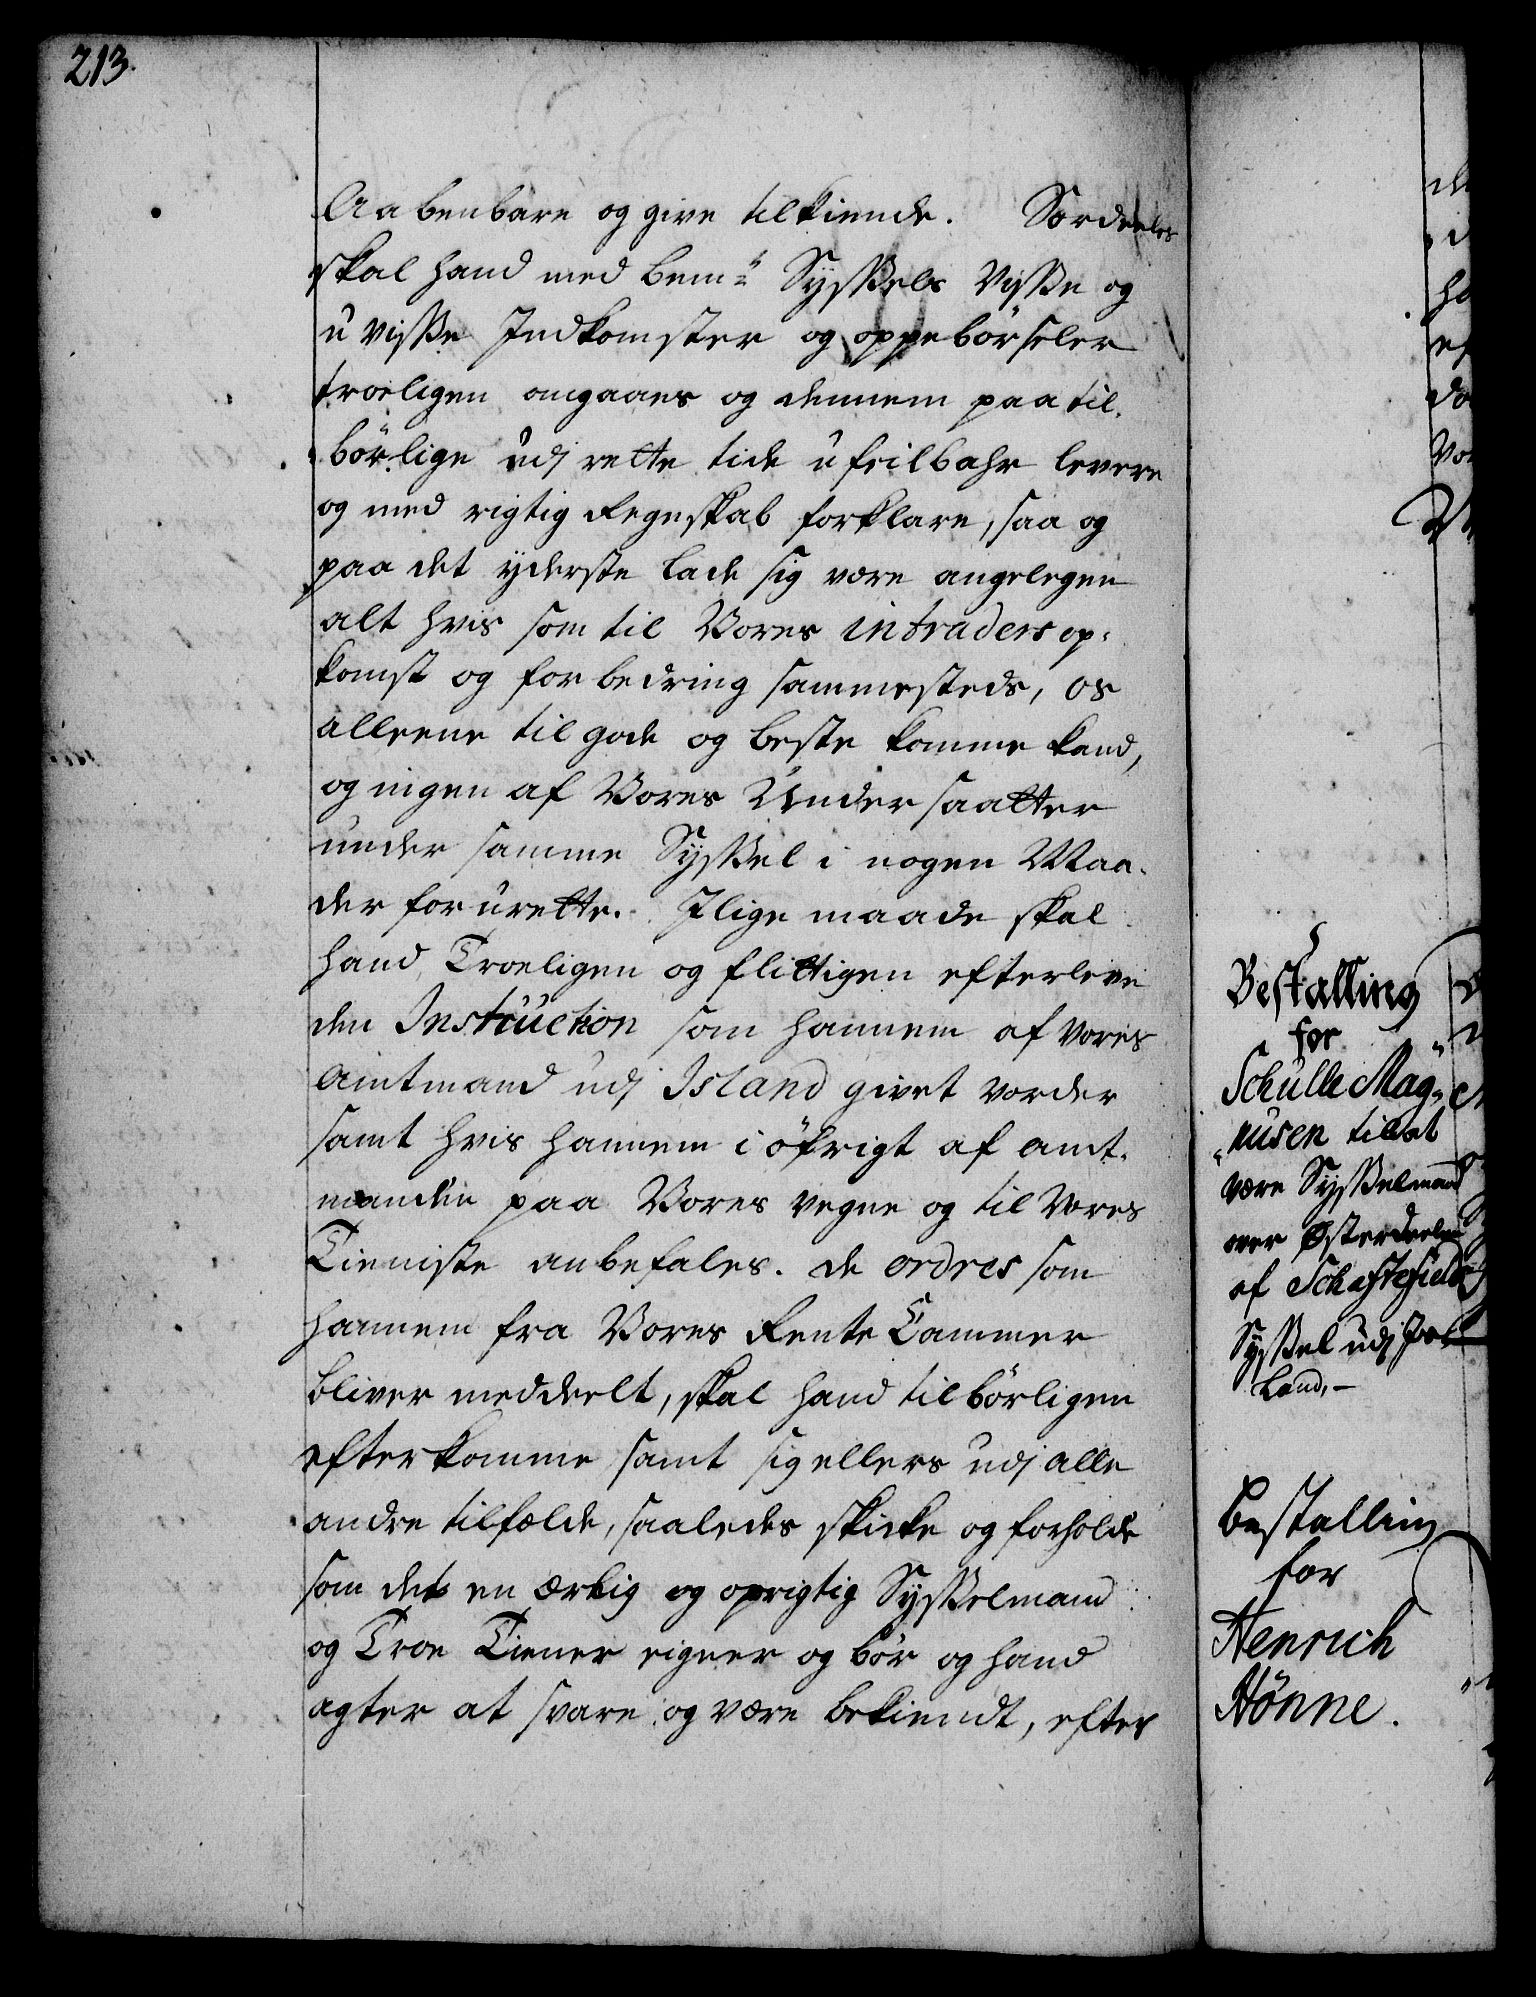 213.
Aabenbare og give tilkiende. Særdeeles
skal hand med bemte Sysßels Visße og
u visße Indkomster og oppebörseler
troeligen omgaaes og dennem paa til,
börlige udj rette tide ufeilbahr levere
og med rigtig Regnskab forklare, saa og
paa det yderste lade sig være angelegen
alt hvis som til Vores intraders op,
komst og forbedring sammesteds, os
alleene til gode og beste komme kand,
og ingen af Vores Undersaatter
under samme Sysßel i nogen Maa,
der forurette. Ilige maade skal
hand Troeligen og flittigen efterleve
den Instruction som hannem af vores
Amtmand udj Island givet vorder
samt hvis hannem i öfrigt af amt,
manden paa Vores vegne og til Vores
Tieniste anbefales. de ordres som
hannem fra Vores Rente Cammer
bliver meddeelt, skal hand tilbörligen
efterkomme samt sig ellers udj alle
andre tilfælde, saaledes skicke og forholde
som det en ærlig og oprigtig Sysßelmand
og Troe Tiener eigner og bör og hand
agter at svare og være bekiendt, efter
Bestalling
for
Schulle Mag,,
,,nusen til at
være Sysßelmand
over Østerdeelen
af Schaftefields
Sysßel udj Is
land,-
Bestalling
for
Henrich
Hönne.